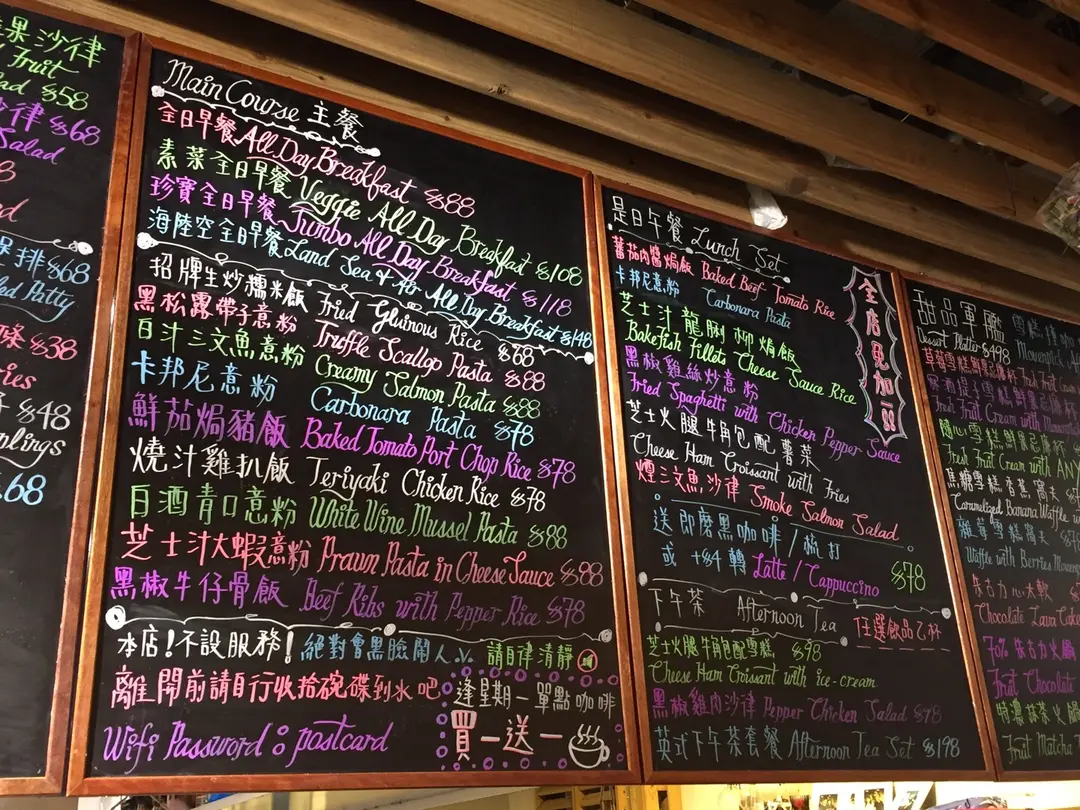 果沙律
Fruit
$58
沙律 $68
Salad
排 $68
Patty
$38
$48
68
Main Course 主餐
全日早餐 All Day Breakfast $88
素菜全日早餐 Veggie All Day Breakfast $108
珍寶全日早餐 Jumbo All Day Breakfast $118
海陸空全日早餐 Land Sea & Air All Day Breakfast $148
招牌生炒糯米飯 Fried Gluinous Rice $68
黑松露帶子意粉 Truffle Scallop Pasta $88
白汁三文魚意粉 Creamy Salmon Pasta $88
卡邦尼意粉 Carbonara Pasta $78
鮮茄焗豬飯 Baked Tomato Port Chop Rice $78
燒汁雞扒飯 Teriyaki Chicken Rice $78
白酒青口意粉 White Wine Mussel Pasta $88
芝士汁大蝦意粉 Prawn Pasta in Cheese Sauce $88
黑椒牛仔骨飯 Beef Ribs with Pepper Rice $78
本店!不設服務! 絕對會黑臉鬧人.v. 請自律清靜
離開前請自行收拾碗碟到水吧
Wifi Password: postcard
逢星期一單點咖啡
買一送一
是日午餐 Lunch Set
蕃茄肉醬焗飯 Baked Beef Tomato Rice
卡邦尼意粉 Carbonara Pasta
芝士汁龍脷柳焗飯
Bakefish Fillets Cheese Sauce Rice
黑椒雞絲炒意粉
Fried Spaghetti with Chicken Pepper Sauce
芝士火腿牛角包配薯菜
Cheese Ham Croissant with Fries
煙三文魚沙律 Smoke Salmon Salad
送即磨黑咖啡/梳打
或 +$4 轉 Latte/Cappuccino $78
全店免加一!!
下午茶 Afternoon Tea 任選飲品乙杯
芝士火腿牛角包配雪糕 $98
Cheese Ham Croissant with ice-cream
黑椒雞肉沙律 Pepper Chicken Salad $98
英式下午茶套餐 Afternoon Tea Set $198
甜品軍艦
Dessert Platter $498
Fresh Fruit Cream with ANY
焦糖雪糕香蕉窩夫
Caramelized Banana Waffle
Waffle with Berries
朱古力心太軟
Chocolate Lava Cake
70% 朱古力火鍋
Fruit Chocolate
特濃抹茶火鍋
Fruit Matcha